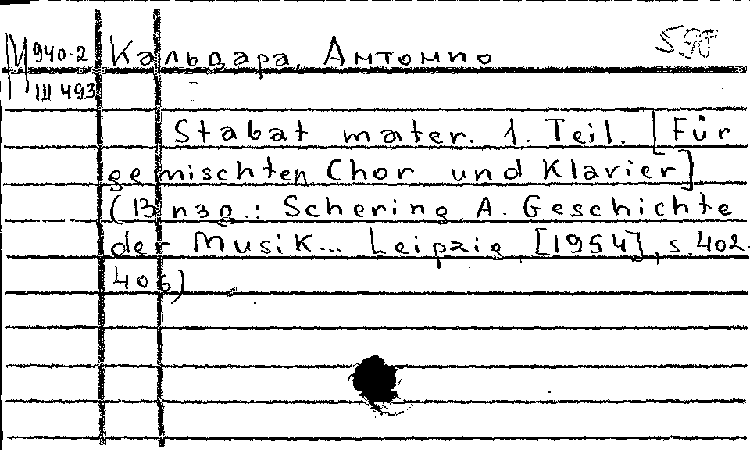 М 940-2 Кальдара, Антонио 590
III 493
Stabat mater. 1. Teil. [Für
gemischten Chor und Klavier]
(В изд.: Schering A. Geschichte
der Musik... Leipzig, [1954], s. 402-
406)